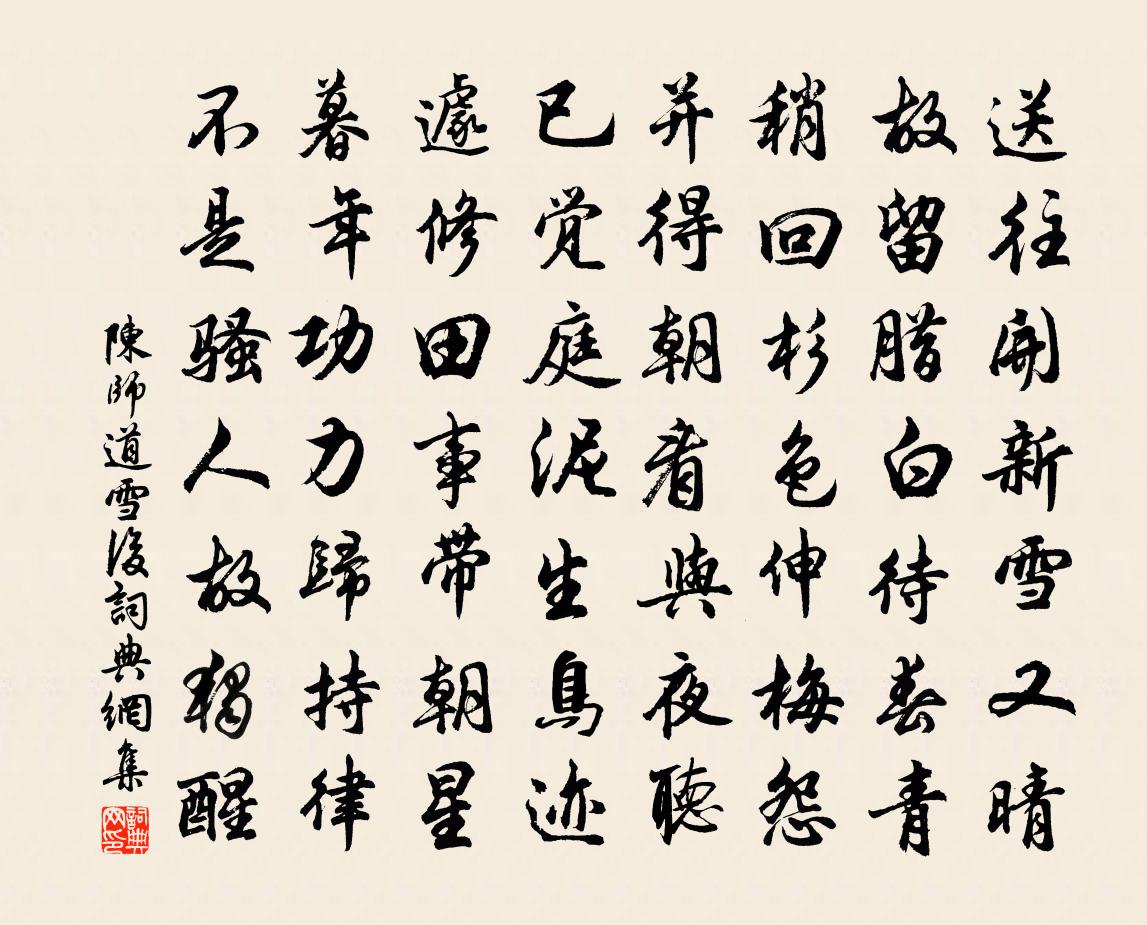 送往開新雪又晴
故留腊白待春青
稍回杉色伸梅怨
并得朝看與夜聽
已觉庭泥生鳥迹
遽修田事带朝星
暮年功力歸持律
不是骚人故獨醒
陳師道雪後詞典網集
詞典网印